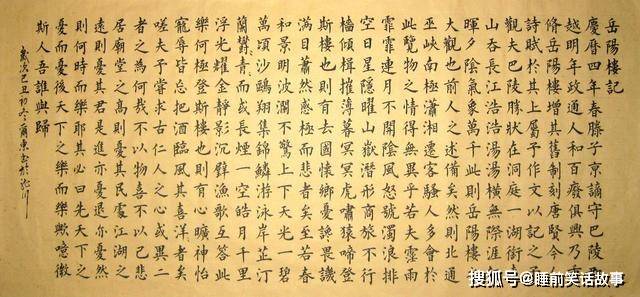 岳陽樓記
慶曆四年春滕子京謫守巴陵郡
越明年政通人和百廢俱興乃重
脩岳陽樓增其舊制刻唐賢今人
詩賦於其上屬予作文以記之予
觀夫巴陵勝狀在洞庭一湖銜遠
山吞長江浩浩湯湯橫無際涯朝
暉夕陰氣象萬千此則岳陽樓之
大觀也前人之述備矣然則北通
巫峽南極瀟湘遷客騷人多會於
此覽物之情得無異乎若夫霪雨
霏霏連月不開陰風怒號濁浪排
空日星隱曜山嶽潛形商旅不行
檣傾楫摧薄暮冥冥虎嘯猿啼登
斯樓也則有去國懷鄉憂讒畏譏
滿目蕭然感極而悲者矣至若春
和景明波瀾不驚上下天光一碧
萬頃沙鷗翔集錦鱗游泳岸芷汀
蘭鬱鬱青青而或長煙一空皓月千里
浮光耀金靜影沉璧漁歌互答此
樂何極登斯樓也則有心曠神怡
寵辱皆忘把酒臨風其喜洋洋者矣
嗟夫予嘗求古仁人之心或異二
者之為何哉不以物喜不以己悲
居廟堂之高則憂其民處江湖之
遠則憂其君是進亦憂退亦憂然
則何時而樂耶其必曰先天下之
憂而憂後天下之樂而樂歟噫微
斯人吾誰與歸
歲次己丑初冬爾東書於川
搜狐号@睡前笑话故事